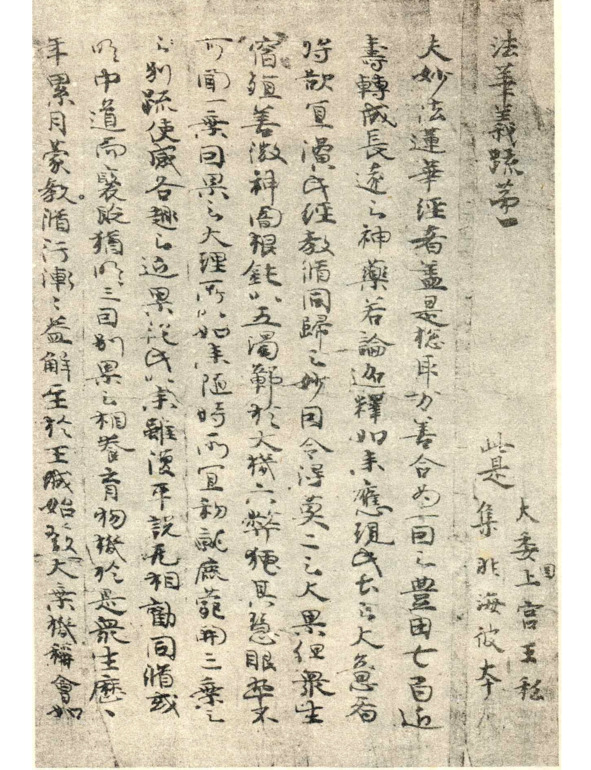 法華義疏第一
此是
大委國上宮王私
集非海彼本
夫妙法蓮華經者蓋是惣取万善合為一因之豊田七百近
壽轉成長遠之神藥若論迦釋如來應現此土之大意者
将欲宜演此經教脩同歸之妙因令得莫二之大果但衆生
宿殖善微神闇根鈍以五濁鄣於大機六弊掩其慧眼卒不
可聞一乘因果之大理所以如來随時所宜初就鹿苑開三乘之
別疏使感各趣之近果從此以來雖復平說无相勸同脩或
明中道而褒貶猶明三因別果之相養育物機於是衆生歷〻
年累月蒙教脩行漸〻益解至於王城始發大乘機稱會如